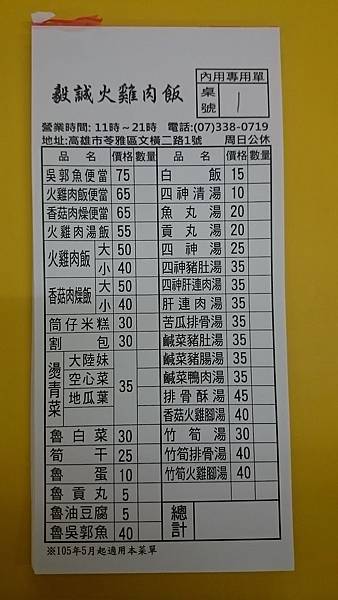 毅誠火雞肉飯
內用專用單
桌號 1
營業時間: 11時～21時 電話:(07)338-0719
地址:高雄市苓雅區文橫二路1號 周日公休
品名 價格 數量 品名 價格 數量
吳郭魚便當 75 白飯 15
火雞肉飯便當 65 四神清湯 10
香菇肉燥便當 65 魚丸湯 20
火雞肉湯飯 55 貢丸湯 20
火雞肉飯 大 50 四神湯 25
小 40 四神豬肚湯 35
香菇肉燥飯 大 50 四神肝連肉湯 35
小 40 肝連肉湯 35
筒仔米糕 30 苦瓜排骨湯 35
割包 30 鹹菜豬肚湯 35
燙青菜 大陸妹 35 鹹菜豬腸湯 35
空心菜 鹹菜鴨肉湯 35
地瓜葉 排骨酥湯 45
香菇火雞腳湯 40
魯白菜 30 竹筍湯 30
筍干 25 竹筍排骨湯 40
魯蛋 10 竹筍火雞腳湯 40
魯貢丸 5
魯油豆腐 5 總計
魯吳郭魚 40
※105年5月起適用本菜單